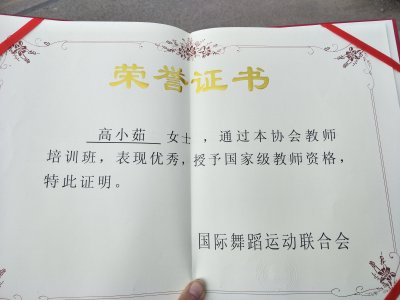 荣誉证书
高小茹 女士，通过本协会教师
培训班，表现优秀，授予国家级教师资格，
特此证明。
国际舞蹈运动联合会